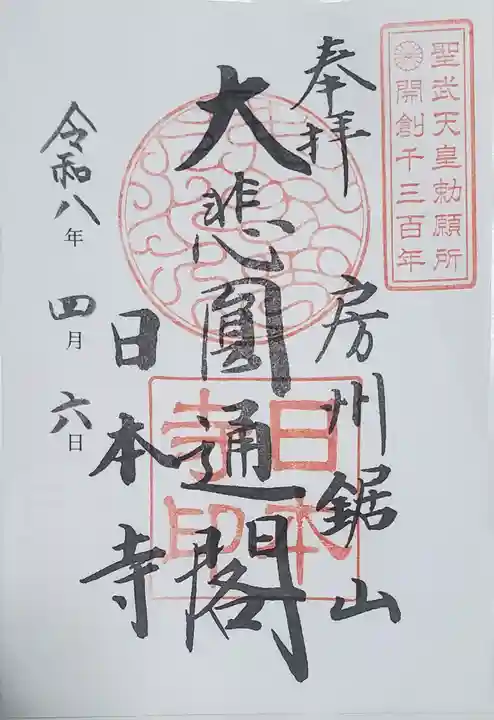 聖武天皇勅願所
開創千三百年
奉拝
房州鋸山
大悲圓通閣
日本寺
令和八年四月六日
日本寺印